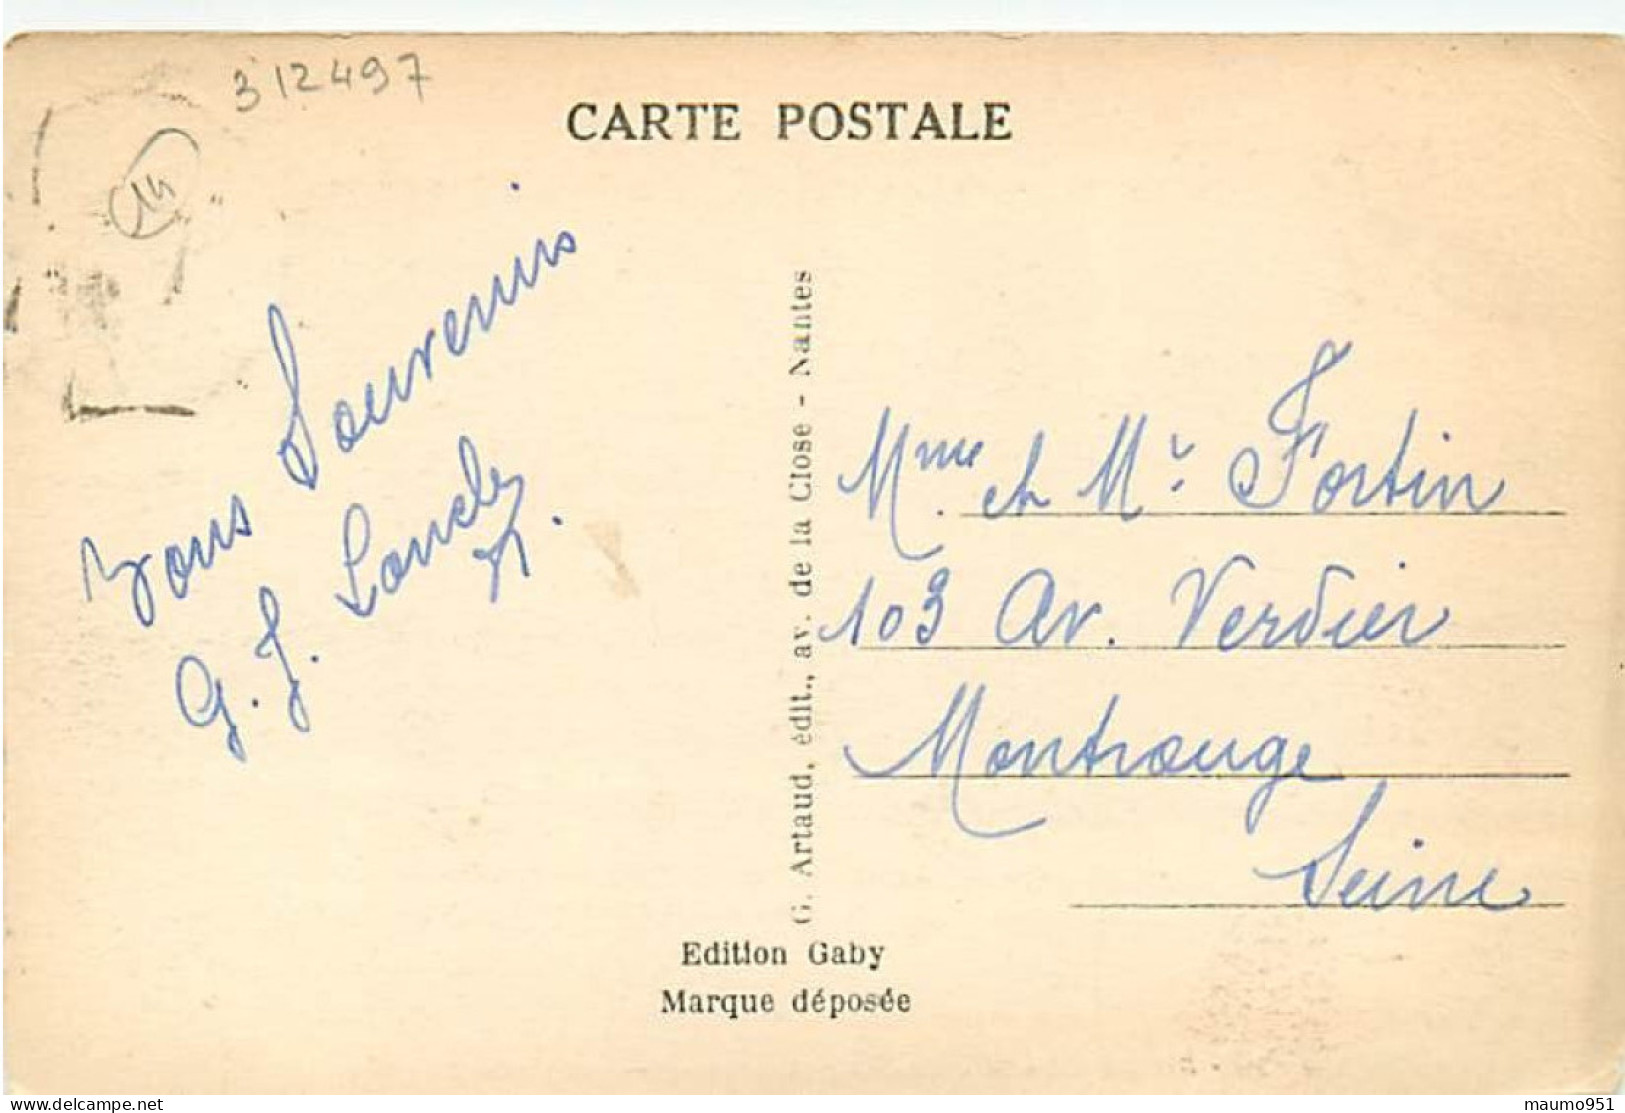 312497
14
CARTE POSTALE
Bons Souvenirs
G. J.
G. Artaud, édit., av. de la Close - Nantes
Mme. et Mr Fortin
103 Av. Verdier
Montrouge
Seine
Edition Gaby
Marque déposée
www.delcampe.net
maumo951